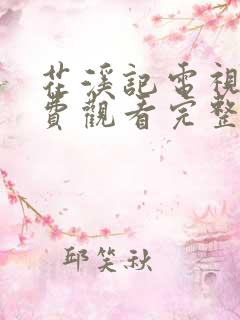 茌溪記電視
費觀看完整
邱笑秋